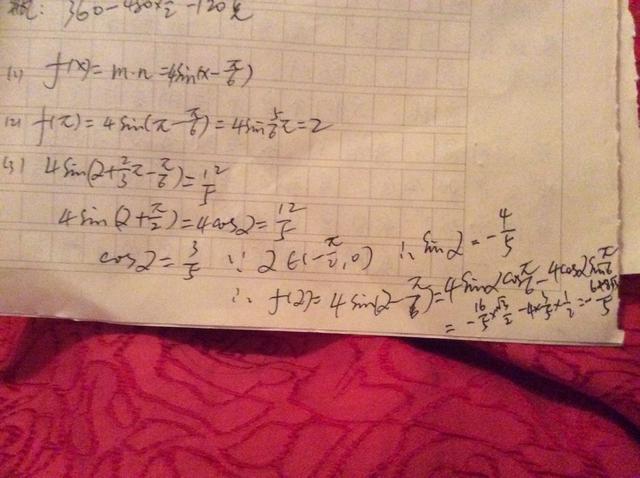 360-480×½=120元
(1) f(x)=m·n=4sin(x-π/6)
(2) f(π)=4sin(π-π/6)=4sin5/6π=2
(3) 4sin(α+2/3π-π/6)=12/5
4sin(α+π/2)=4cosα=12/5
cosα=3/5 ∵ α∈(-π/2,0) ∴ sinα=-4/5
∴ f(α)=4sin(α-π/6)=4sinαcosπ/6-4cosαsinπ/6
=-16/5×√3/2-4×3/5×1/2=-6+8√3/5